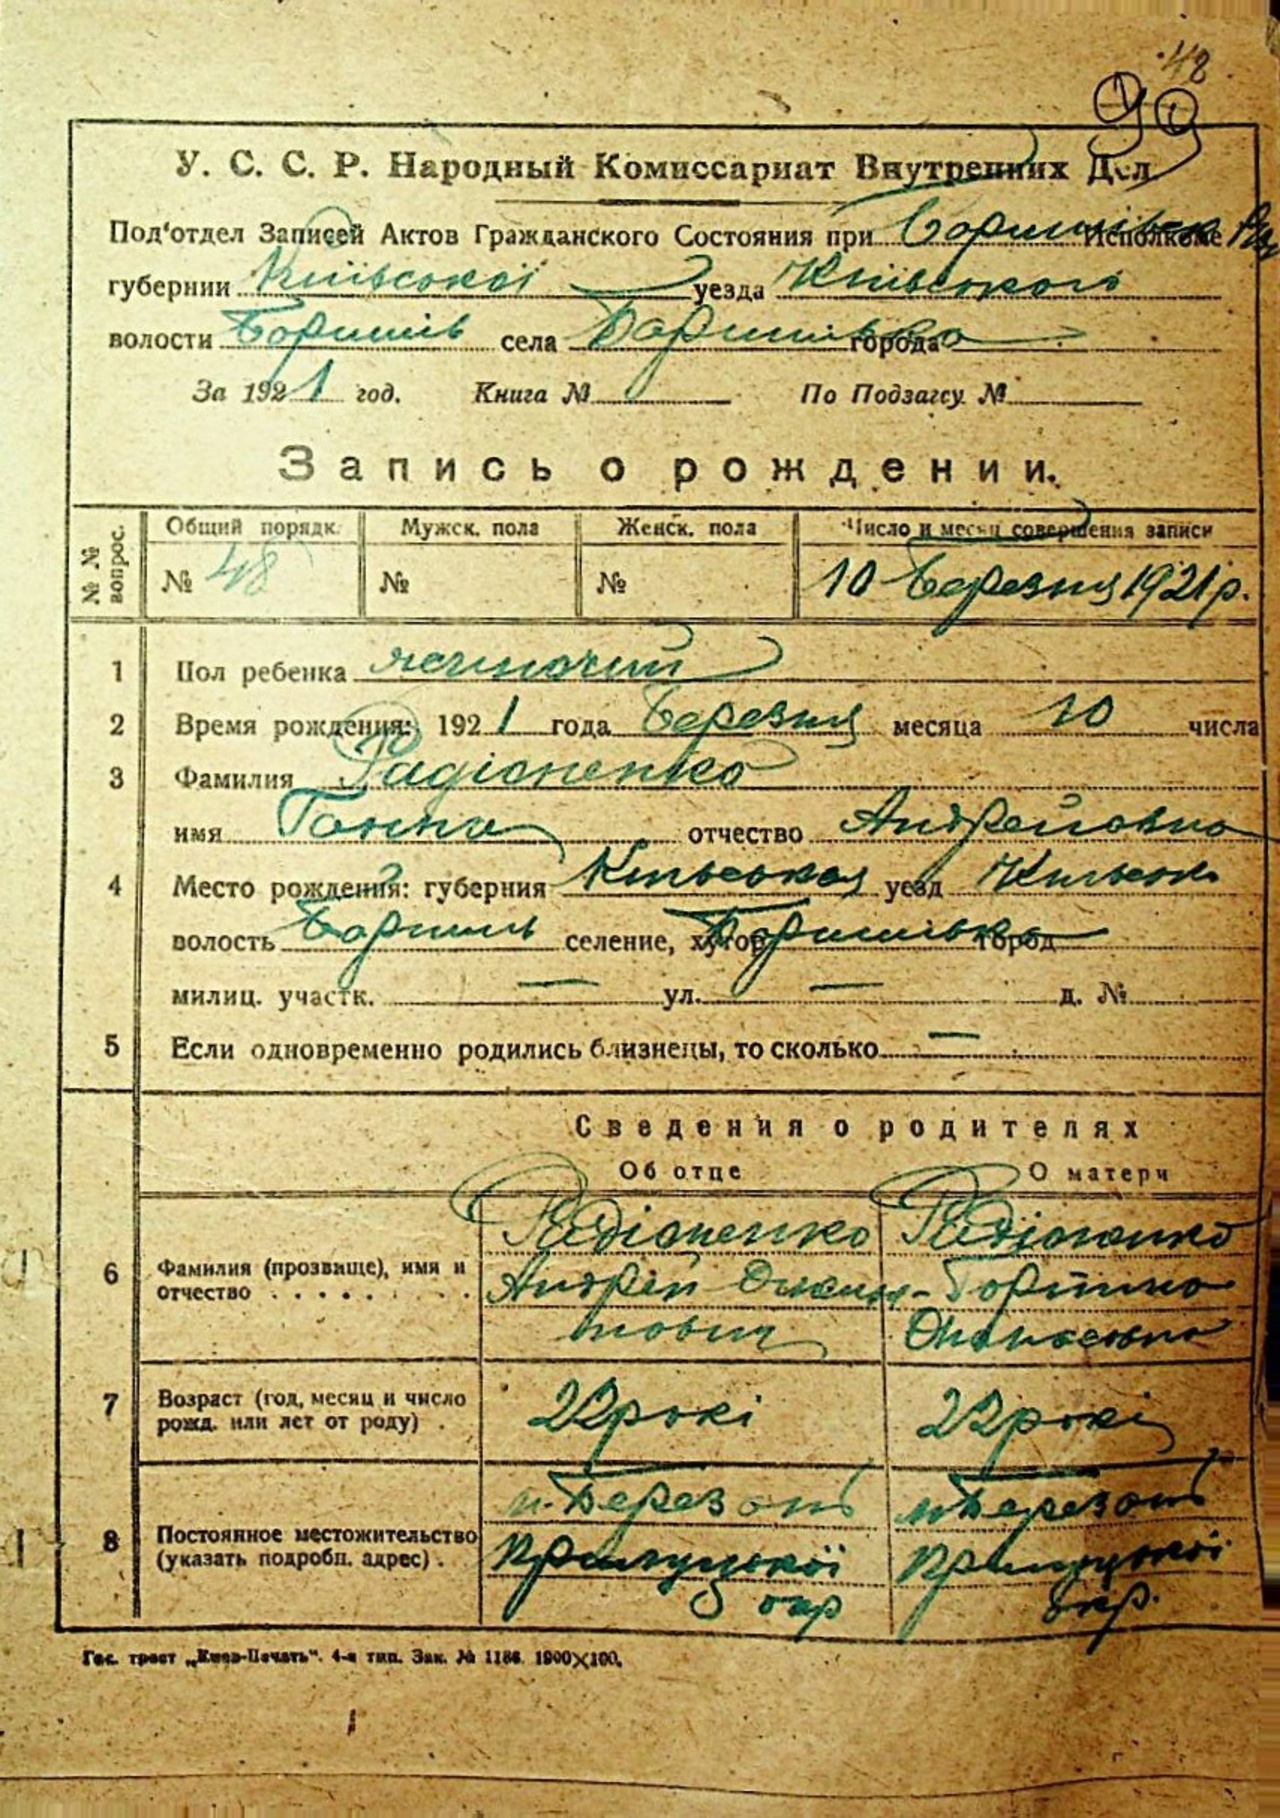 42
99
У. С. С. Р. Народный Комиссариат Внутренних Дел
Под'отдел Записей Актов Гражданского Состояния при Исполкоме
губернии Київської уезда Київського
волости Баришів села Баришівка города
За 1921 год. Книга № По Подзагсу №
Запись о рождении.
№№ вопрос. Общий порядк. Мужск. пола Женск. пола Число и месяц совершения записи
№ 48 № № 10 Березня 1921 р.
1 Пол ребенка жіночий
2 Время рождения: 1921 года Березня месяца 10 числа
3 Фамилия Радіоненко
имя Ганна отчество Андрейовна
4 Место рождения: губерния Київськая уезд Київськ
волость Баришів селение, хутор Баришівка город
милиц. участк. — ул. — д. №
5 Если одновременно родились близнецы, то сколько —
Сведения о родителях
Об отце О матери
Радіоненко Радіоненко
6 Фамилия (прозвище), имя и Андрей
отчество Опанасовна
7 Возраст (год, месяц и число рожд. или лет от роду) 22 рокі 22 рокі
м. Березань м. Березань
8 Постоянное местожительство (указать подробн. адрес) Прилуцької Прилуцької
окр окр.
Гос. трест „Киев-Печать". 4-я тип. Зак. № 1186. 1900×100.